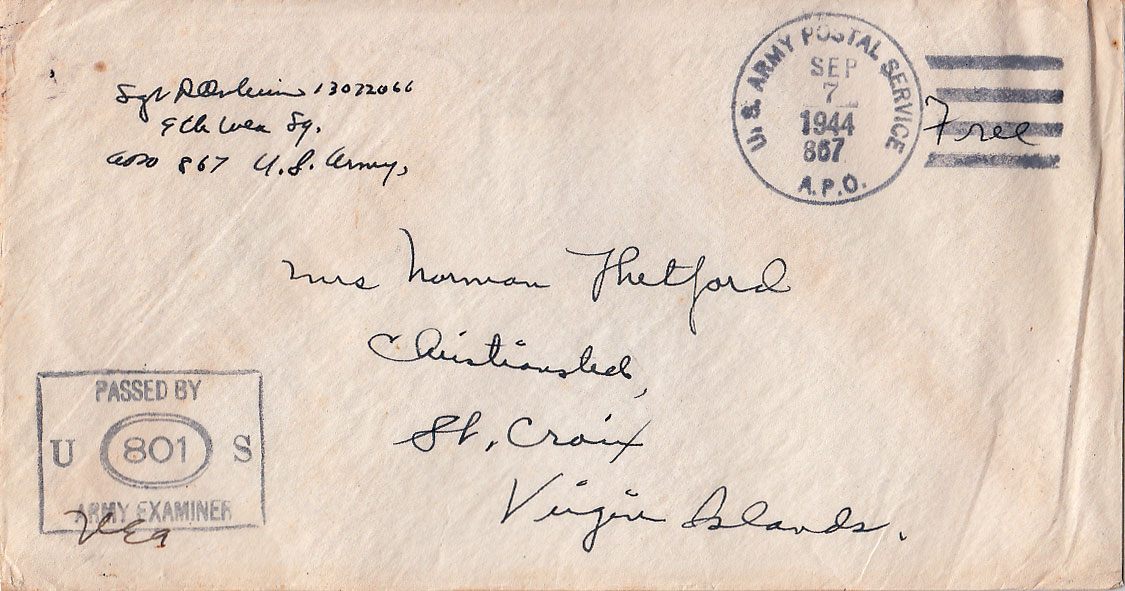 Sgt 13072066
9th Wea Sq.
APO 867 U.S. Army,
U.S. ARMY POSTAL SERVICE
SEP
7
1944
867
A.P.O.
Free
Mrs Norman Thetford
Christiansted,
St. Croix
Virgin Islands.
PASSED BY
U 801 S
ARMY EXAMINER